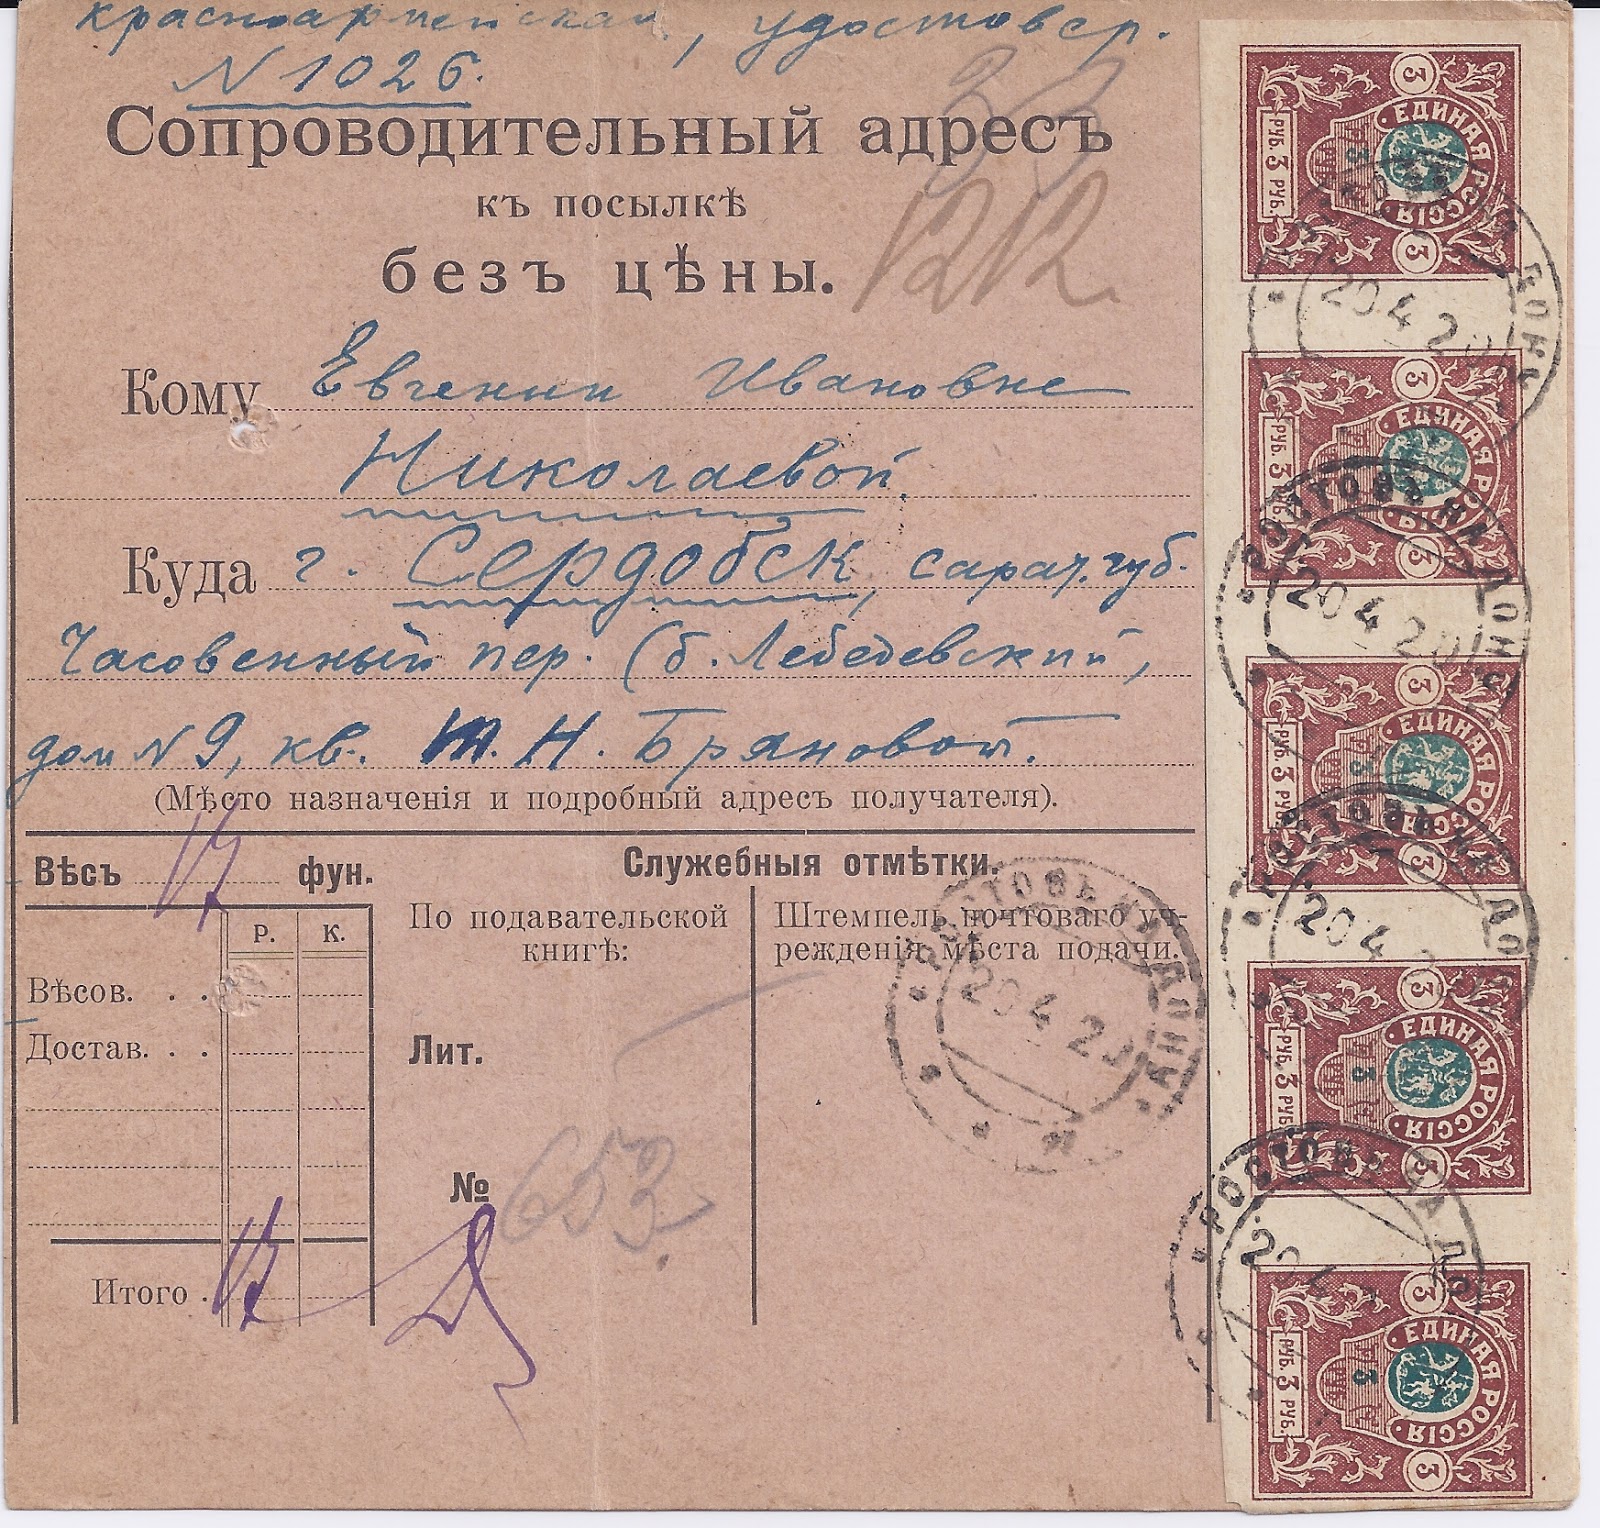 красноармейская, удостовер.
N 1026.
Сопроводительный адресъ
къ посылкѣ
безъ цѣны.
1212.
Кому Евгении Ивановне
Николаевой.
Куда г. Сердобск, Сарат. губ.
Часовенный пер. (б. Лебедевский,
дом N 9, кв. Т. Н. Бряновой.
(Мѣсто назначенія и подробный адресъ получателя).
Вѣсъ фун.
Служебныя отмѣтки.
Р. К.
По подавательской
книгѣ:
Штемпель почтоваго уч-
режденія мѣста подачи.
Вѣсов. . .
Достав. . .
Лит.
№ 653
Итого .
РОСТОВЪ НА ДОНУ
20 4 20
ЕДИНАЯ РОССІЯ
3 3
РУБ. 3 РУБ.
РОСТОВЪ НА ДОНУ
20 4 20
ЕДИНАЯ РОССІЯ
3 3
РУБ. 3 РУБ.
РОСТОВЪ НА ДОНУ
20 4 20
ЕДИНАЯ РОССІЯ
3 3
РУБ. 3 РУБ.
РОСТОВЪ НА ДО
20 4
ЕДИНАЯ РОССІЯ
3 3
РУБ. 3 РУБ.
РОСТОВЪ НА ДО
20 4
ЕДИНАЯ РОССІЯ
3 3
РУБ. 3 РУБ.